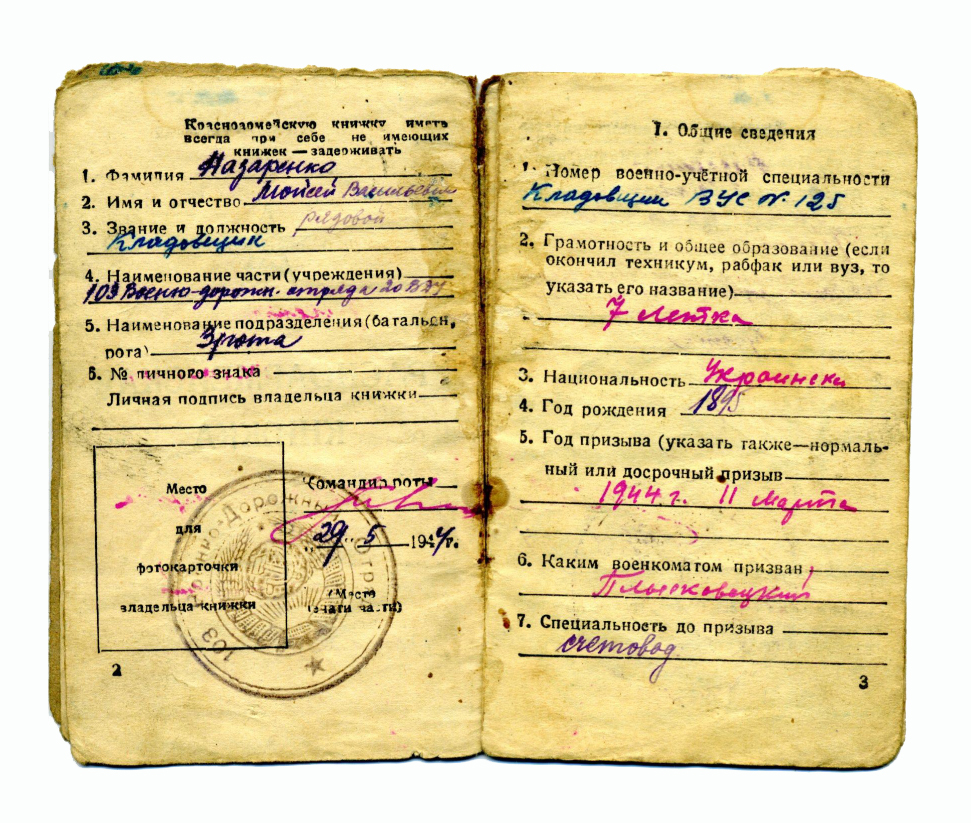 Красноармейскую книжку иметь
всегда при себе не имеющих
книжек — задерживать
1. Фамилия Назаренко
2. Имя и отчество Моисей Васильевич
3. Звание и должность рядовой
Кладовщик
4. Наименование части (учреждения)
103 Военно-дорожн. отряда 20 ВДУ
5. Наименование подразделения (батальон,
рота) 3 рота
6. № личного знака
Личная подпись владельца книжки
Место
для
фотокарточки
владельца книжки
Командир роты
"29" 5 1944 г.
(Место
печати части)
103 Военно-Дорожный отряд
2
I. Общие сведения
1. Номер военно-учётной специальности
Кладовщик ВУС № 125
2. Грамотность и общее образование (если
окончил техникум, рабфак или вуз, то
указать его название)
7 летка
3. Национальность
4. Год рождения 1895
5. Год призыва (указать также—нормаль-
ный или досрочный призыв
1944 г. 11 Марта
6. Каким военкоматом призван
Плысковецкий
7. Специальность до призыва
счетовод
3